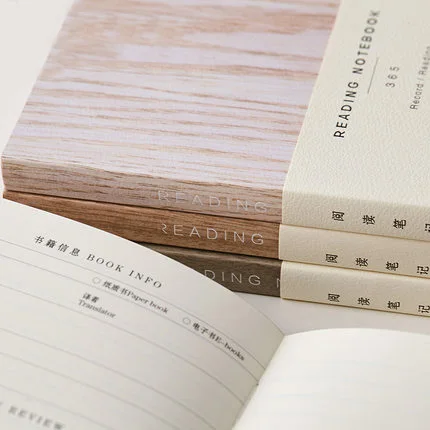 READING NOTEBOOK
365
Record / Reading
READING
阅读笔记
READING
阅读笔记
READING N
阅读笔记
书籍信息 BOOK INFO
○纸质书Paper book
○电子书E-books
译者
Translator
REVIEW